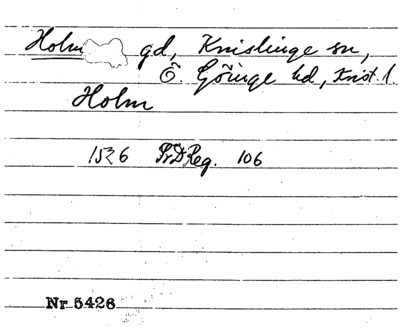 Holm gd, Knislinge sn,
Ö. Göinge hd, Krist. l.
Holm
1536 PrDReg. 106
Nr 5426